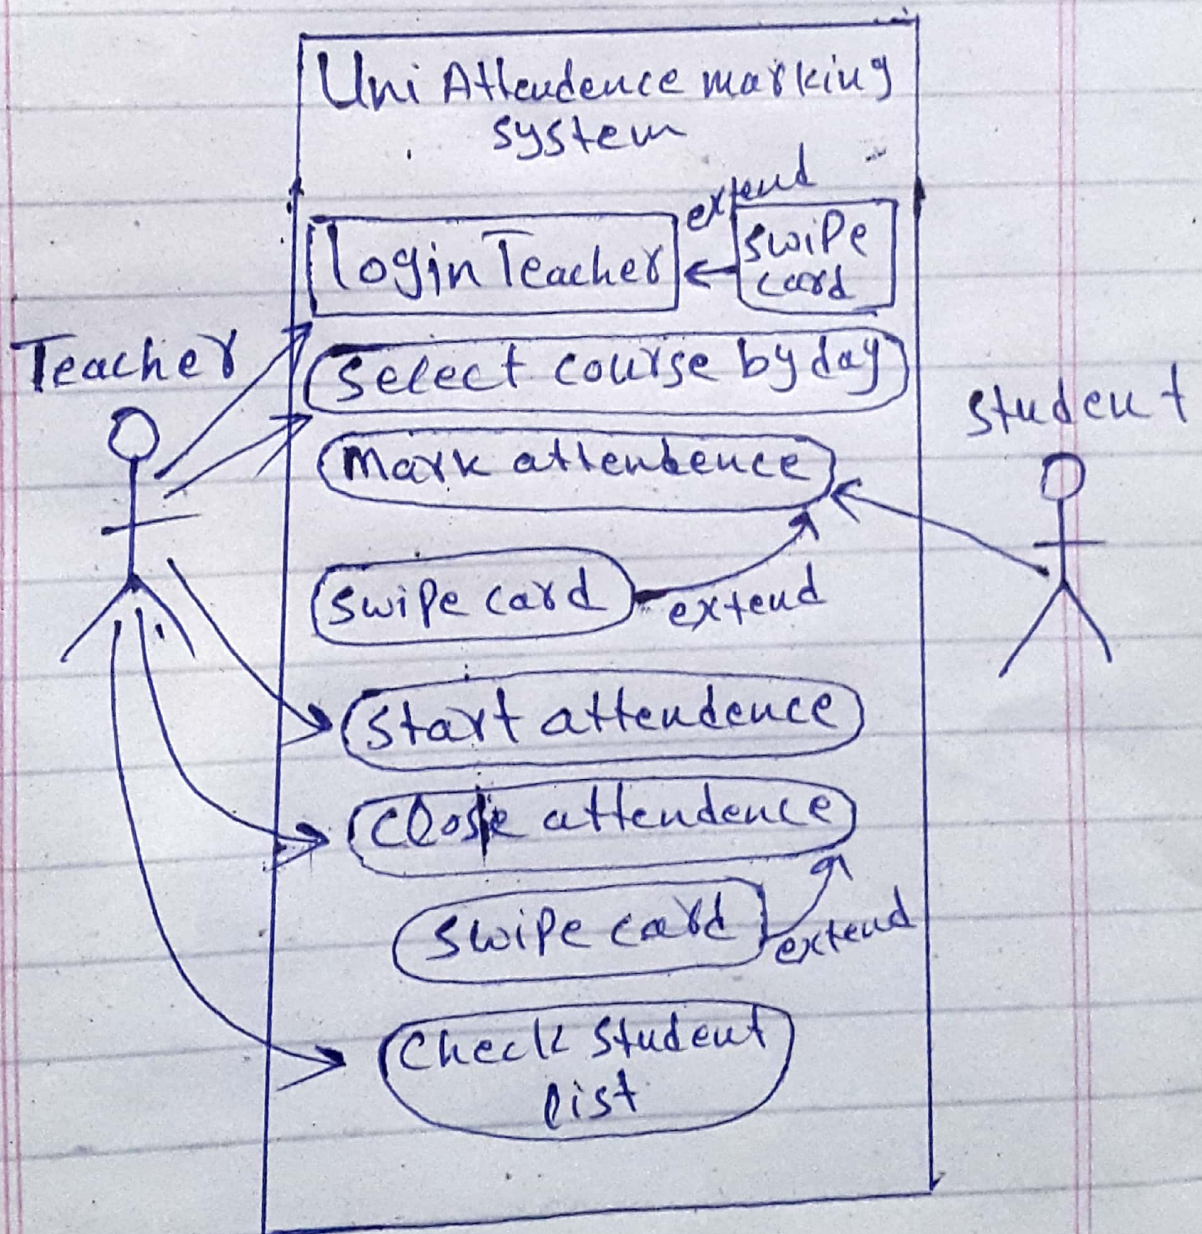 Uni Attendence marking
system
extend
login Teacher
swipe
card
Teacher
Select course by day
student
Mark attendence
swipe card
extend
start attendence
close attendence
swipe card
extend
check student
list